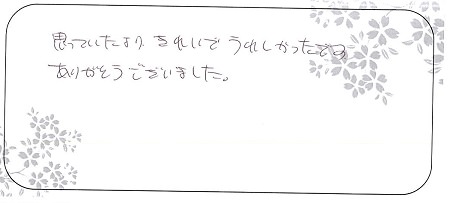 思っていたより きれいで うれしかったです
ありがとうございました。